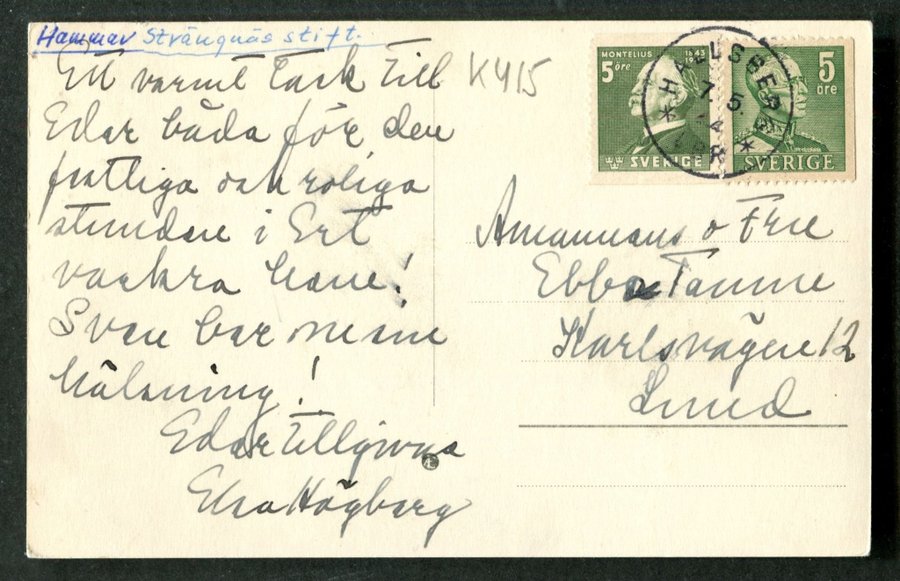 Hammar Strängnäs stift.
Ett varmt tack till
Edar båda för den
festliga och roliga
stunden i Ert
vackra hem!
Svan bar
hälsning!
Edar tillgivna
Elsa Högberg
K415
MONTELIUS 1843 1943
5 öre
SVERIGE
5 öre
SVERIGE
HALLSBERG
7. 5.
Amanuens o Fru
Ebbe Tamme
Karlsvägen 12
Lund